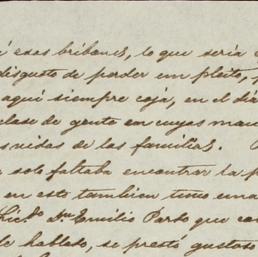 esos bribones, lo que seria
disgusto de perder un pleito,
aquí siempre cojá, en el
clase de gente en cuyas
de las familias.
solo faltaba encontrar la
en esto tambien tuve
Lic.do Dn Emilio Pardo que
hablado, se prestó gustoso